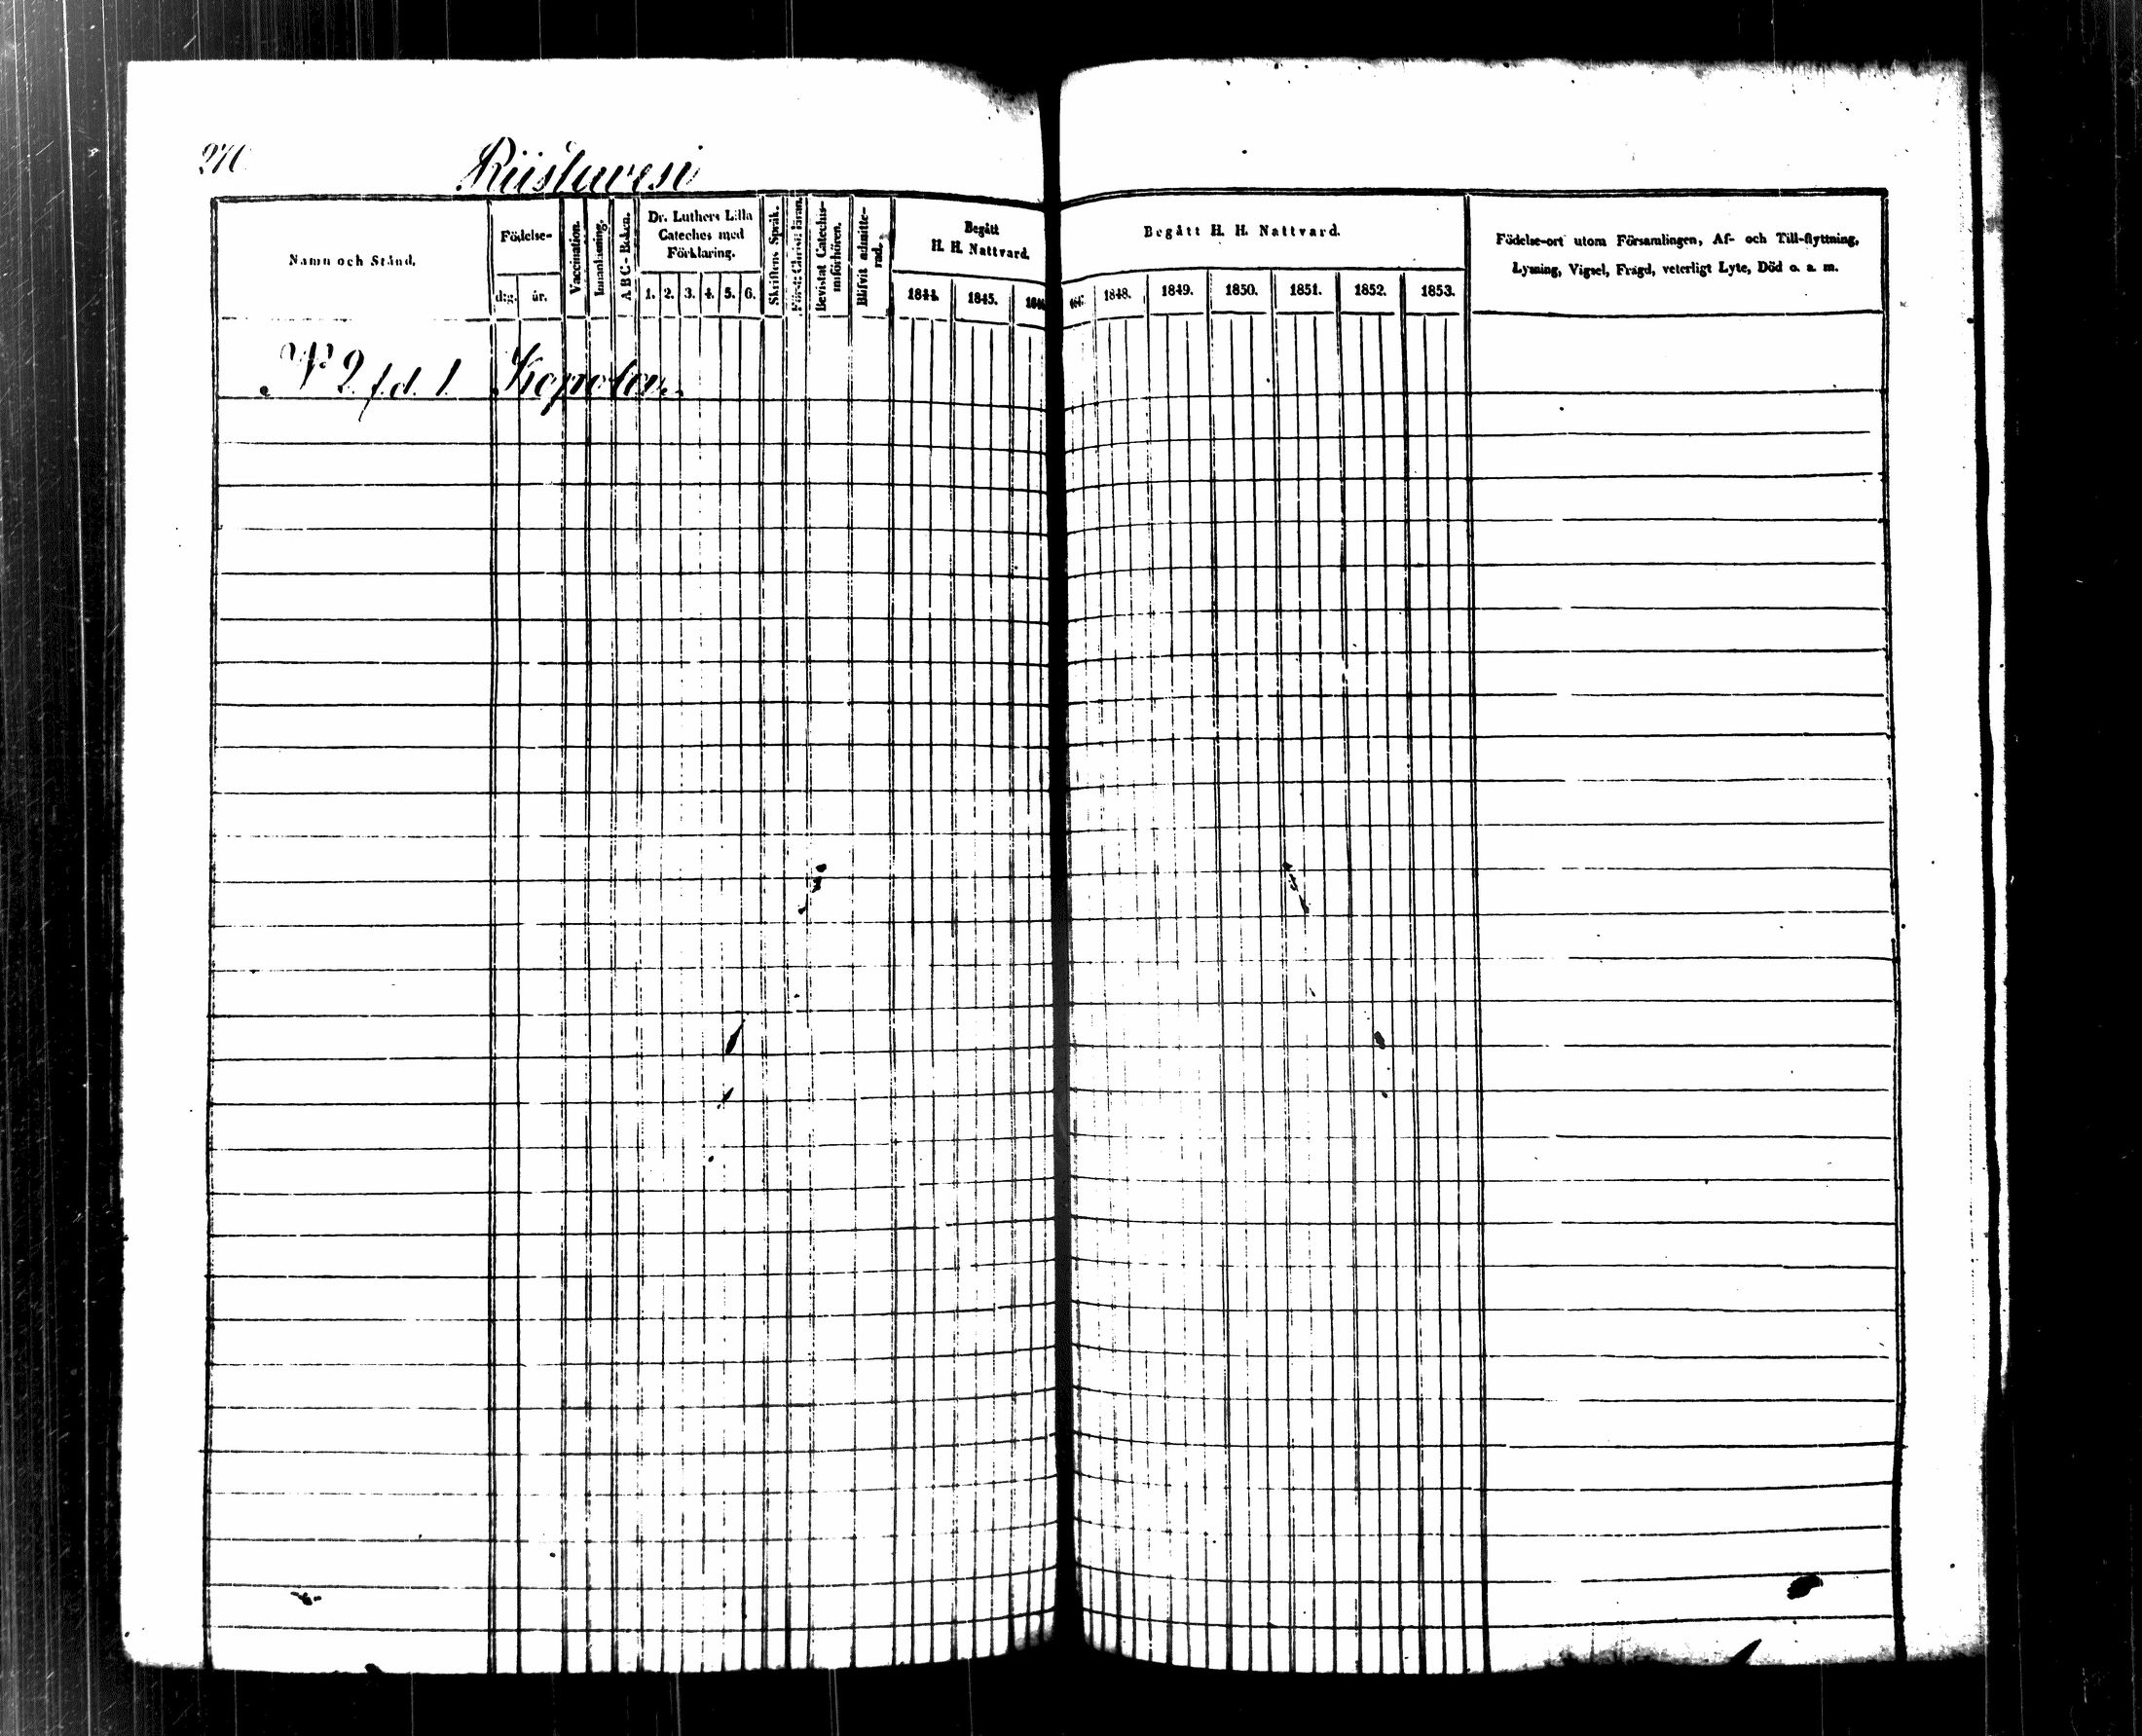 270
Riistavesi
Namn och Stånd.
Födelse-
dag.
år.
Vaccination.
Innanläsning.
A B C-Boken.
Dr. Luthers Lilla
Cateches med
Förklaring.
1. 2. 3. 4. 5. 6.
Skriftens Språk.
Bevistat Catechis-
miförhören.
Blifvit admitte-
rad.
Begått
H. H. Nattvard.
1844. 1845. 1846
Begått H. H. Nattvard.
1847. 1848. 1849. 1850. 1851. 1852. 1853.
Födelse-ort utom Församlingen, Af- och Till-flyttning,
Lysning, Vigsel, Frägd, veterligt Lyte, Död o. s. m.
N° 2 f.d. 1